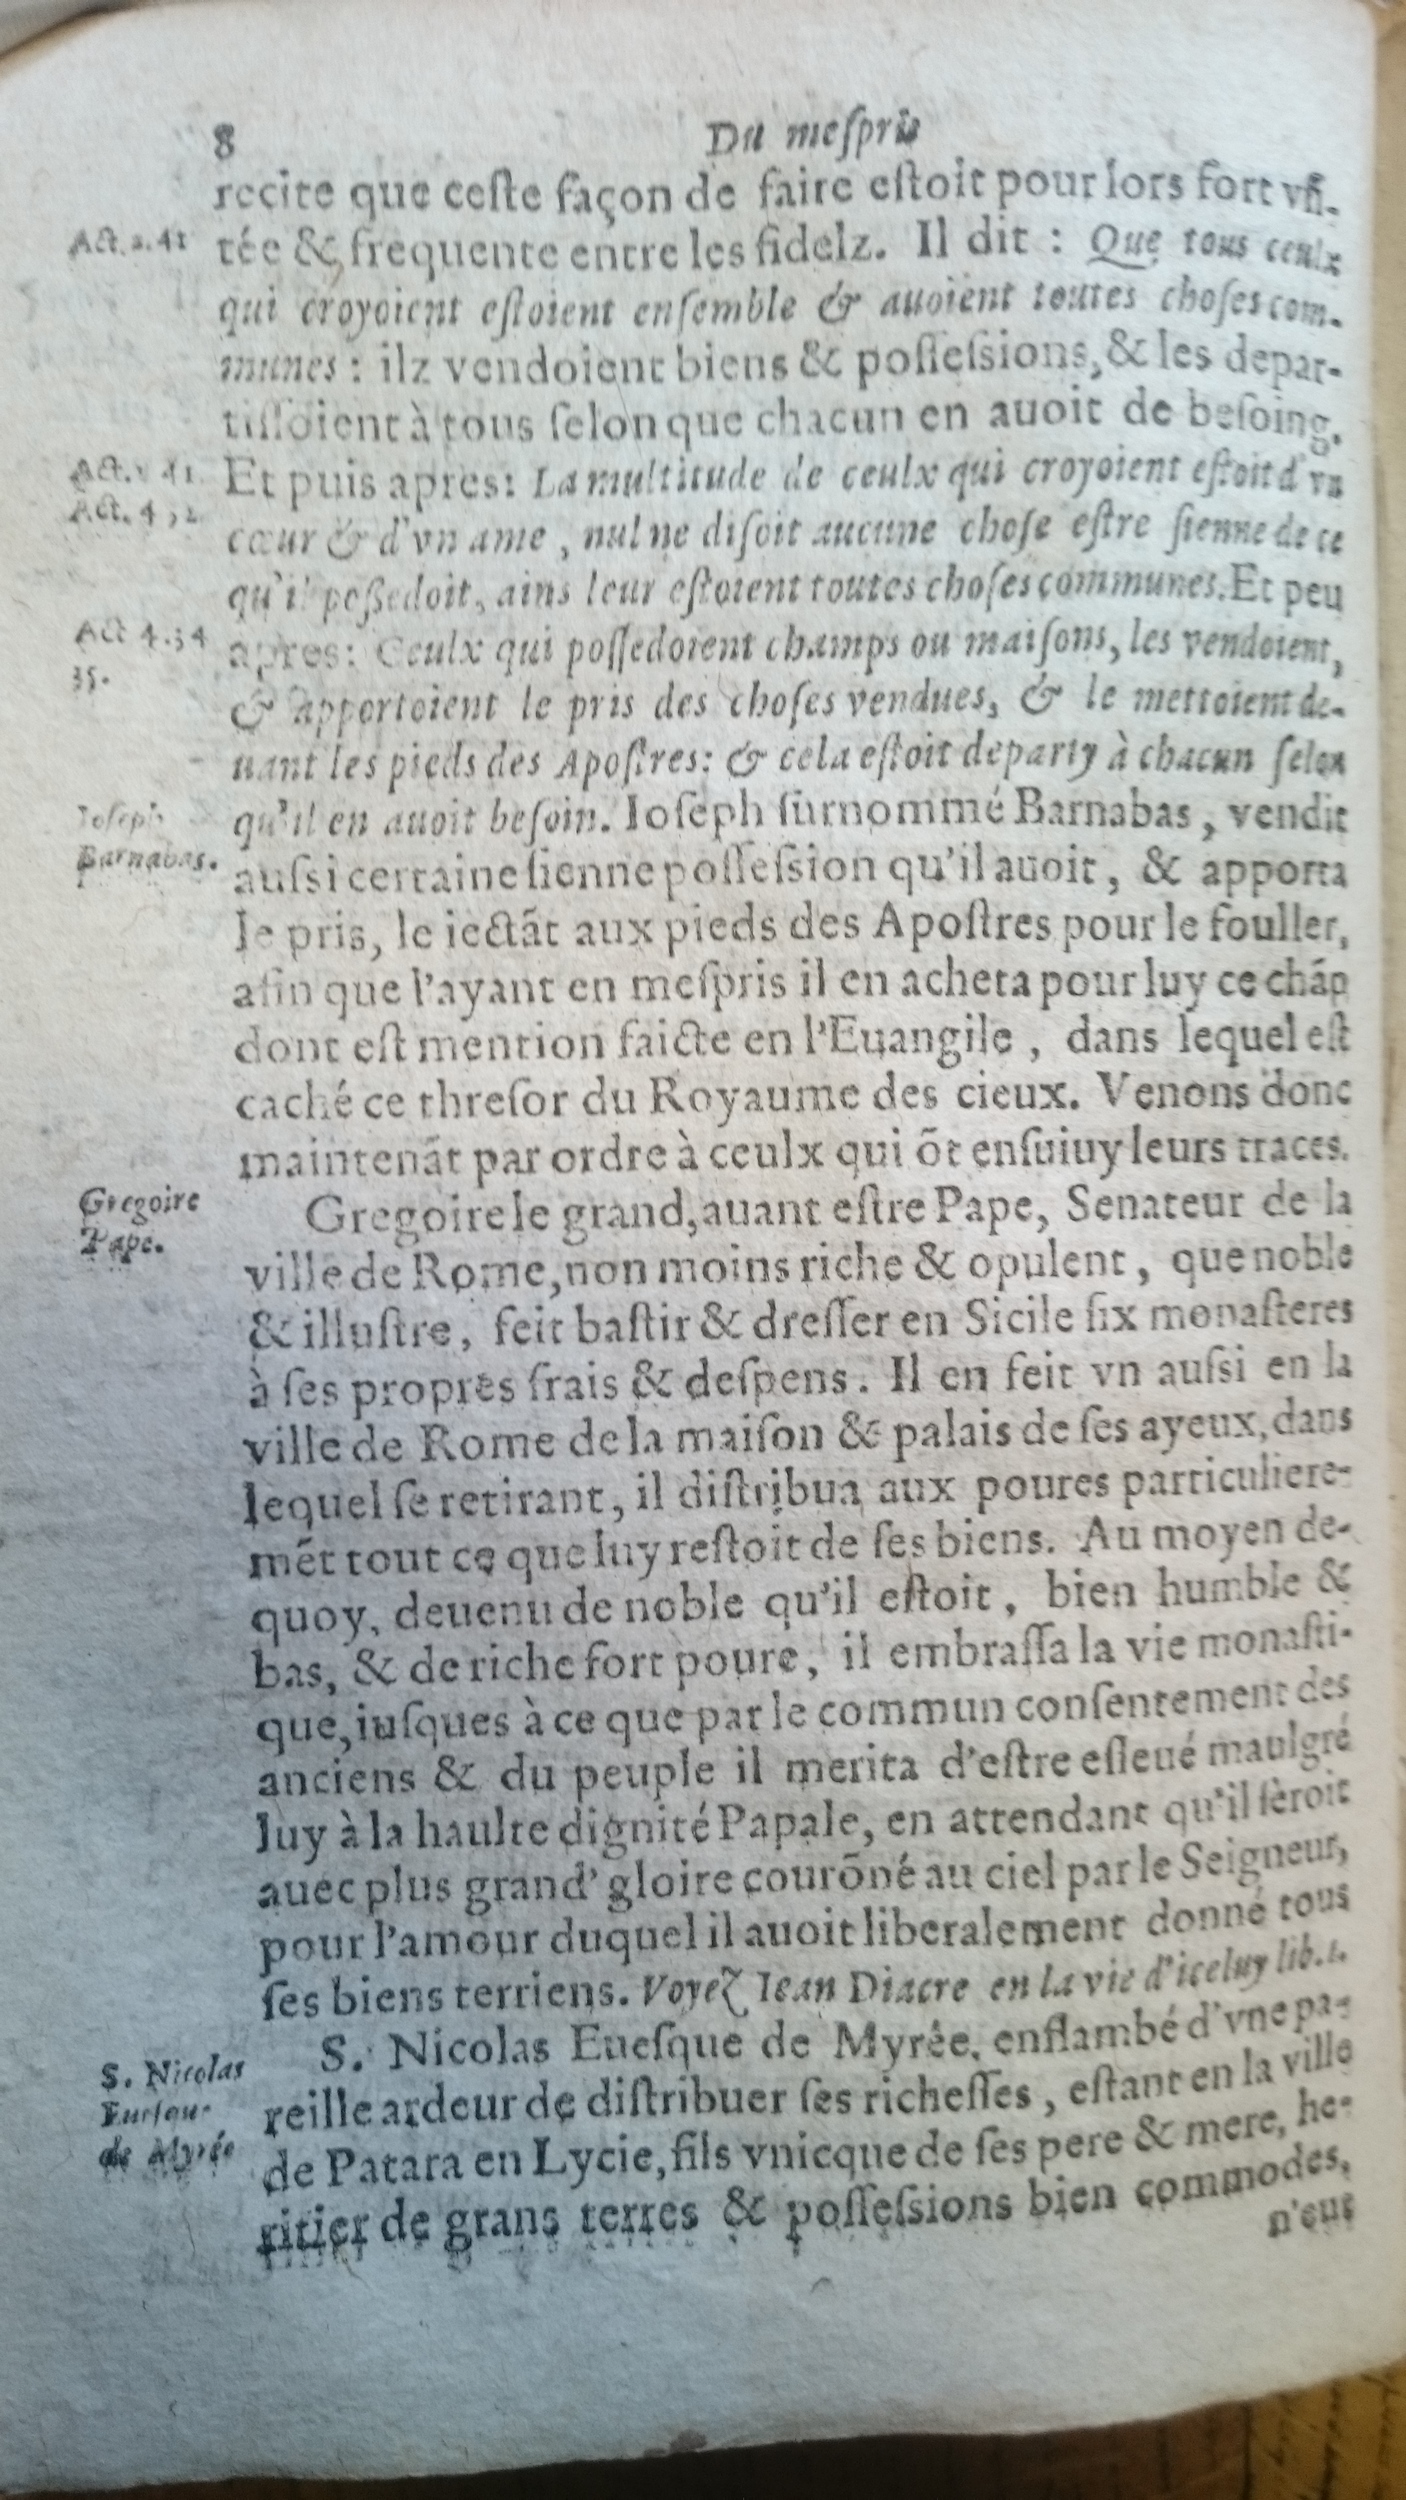 8 Du meſpris
recite que ceſte façon de faire eſtoit pour lors fort vſi-
Act. 2. 41
tée & frequente entre les fidelz. Il dit : Que tous ceulx
qui croyoient eſtoient enſemble & auoient toutes choſes com-
munes : ilz vendoient biens & poſſeſsions, & les depar-
tiſſoient à tous ſelon que chacun en auoit de beſoing.
Act.
Et puis apres: La multitude de ceulx qui croyoient eſtoit d'vn
Act. 4
cœur & d'vn ame , nul ne diſoit aucune choſe eſtre ſienne de ce
qu'il poßedoit, ains leur eſtoient toutes choſes communes. Et peu
Act 4.34
35.
apres: Ceulx qui poſſedoient champs ou maiſons, les vendoient,
& apportoient le pris des choſes vendues, & le mettoient de-
uant les pieds des Apoſtres: & cela eſtoit departy à chacun ſelon
Ioſeph
Barnabas.
qu'il en auoit beſoin. Ioſeph ſurnommé Barnabas , vendit
auſsi certaine ſienne poſſeſsion qu'il auoit , & apporta
le pris, le iectãt aux pieds des Apoſtres pour le fouller,
afin que l'ayant en meſpris il en acheta pour luy ce chãp
dont eſt mention faicte en l'Euangile , dans lequel eſt
caché ce threſor du Royaume des cieux. Venons donc
maintenãt par ordre à ceulx qui õt enſuiuy leurs traces.
Gregoire
Pape.
Gregoire le grand, auant eſtre Pape, Senateur de la
ville de Rome, non moins riche & opulent , que noble
& illuſtre, feit baſtir & dreſſer en Sicile ſix monaſteres
à ſes propres frais & deſpens. Il en feit vn auſsi en la
ville de Rome de la maiſon & palais de ſes ayeux, dans
lequel ſe retirant, il diſtribua aux poures particuliere-
mẽt tout ce que luy reſtoit de ſes biens. Au moyen de-
quoy, deuenu de noble qu'il eſtoit , bien humble &
bas, & de riche fort poure, il embraſſa la vie monaſti-
que, iuſques à ce que par le commun conſentement des
anciens & du peuple il merita d'eſtre eſleué maulgré
luy à la haulte dignité Papale, en attendant qu'il ſeroit
auec plus grand' gloire courõné au ciel par le Seigneur,
pour l'amour duquel il auoit liberalement donné tous
ſes biens terriens. Voyez Iean Diacre en la vie d'iceluy lib.1.
S. Nicolas
Eueſque
de Myrée
S. Nicolas Eueſque de Myrée, enflambé d'vne pa-
reille ardeur de diſtribuer ſes richeſſes , eſtant en la ville
de Patara en Lycie, fils vnicque de ſes pere & mere, he-
ritier de grans terres & poſſeſsions bien commodes,
n'eut